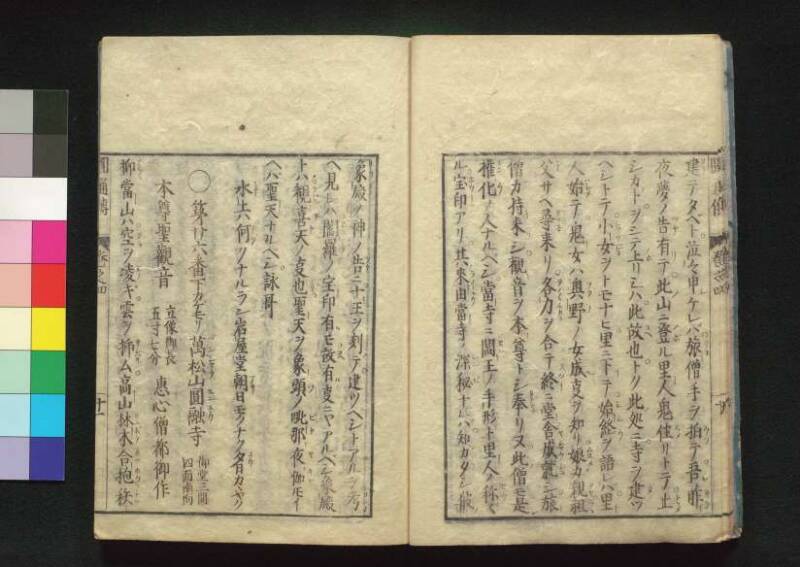 建テタベト泣々申ケレバ旅僧手ヲ拍テ吾昨
夜夢ノ告有テ此山ニ登ル里人鬼住リトテ止
シカトヲシテ上リシハ此故也トソ此処ニ寺ヲ建ツ
ヘシトテ小女ヲトモナヒ里ニ下テ始終ヲ語レハ里
人始テ鬼女ハ奥野ノ女成支ヲ知リ娘カ親祖
父サヘ尋来リ各力ヲ合テ終ニ堂舎成就シ旅
僧カ持来シ観音ヲ本尊トシ奉リ又此僧モ是
権化ノ人ナルヘシ當寺ニ閻王ノ手形ト里人ノ称
ル宝印アリ其来由當寺ノ深秘ナレハ知カタシ
象殿ノ神ノ告ニ十王ヲ刻テ建ツヘシトアルヲ
ヘ見レハ閻羅ノ宝印有モ故有支ニヤアルヘシ象殿
トハ観喜天ノ支也聖天ヲ象頭ノ毗那夜伽モイ
ヘハ聖天ナルヘシ詠哥
水共何ツナルラン岩屋堂朝日モラナク夕日カヽヤク
○第廿六番下カモリ萬松山圓融寺 御堂三間 四面南向
本尊聖觀音 立像御長 五寸七分 恵心僧都御作
抑當山ハ空ヲ凌キ雲ヲ挿ム高山林木合抱
圓通傳
巻之四
十一